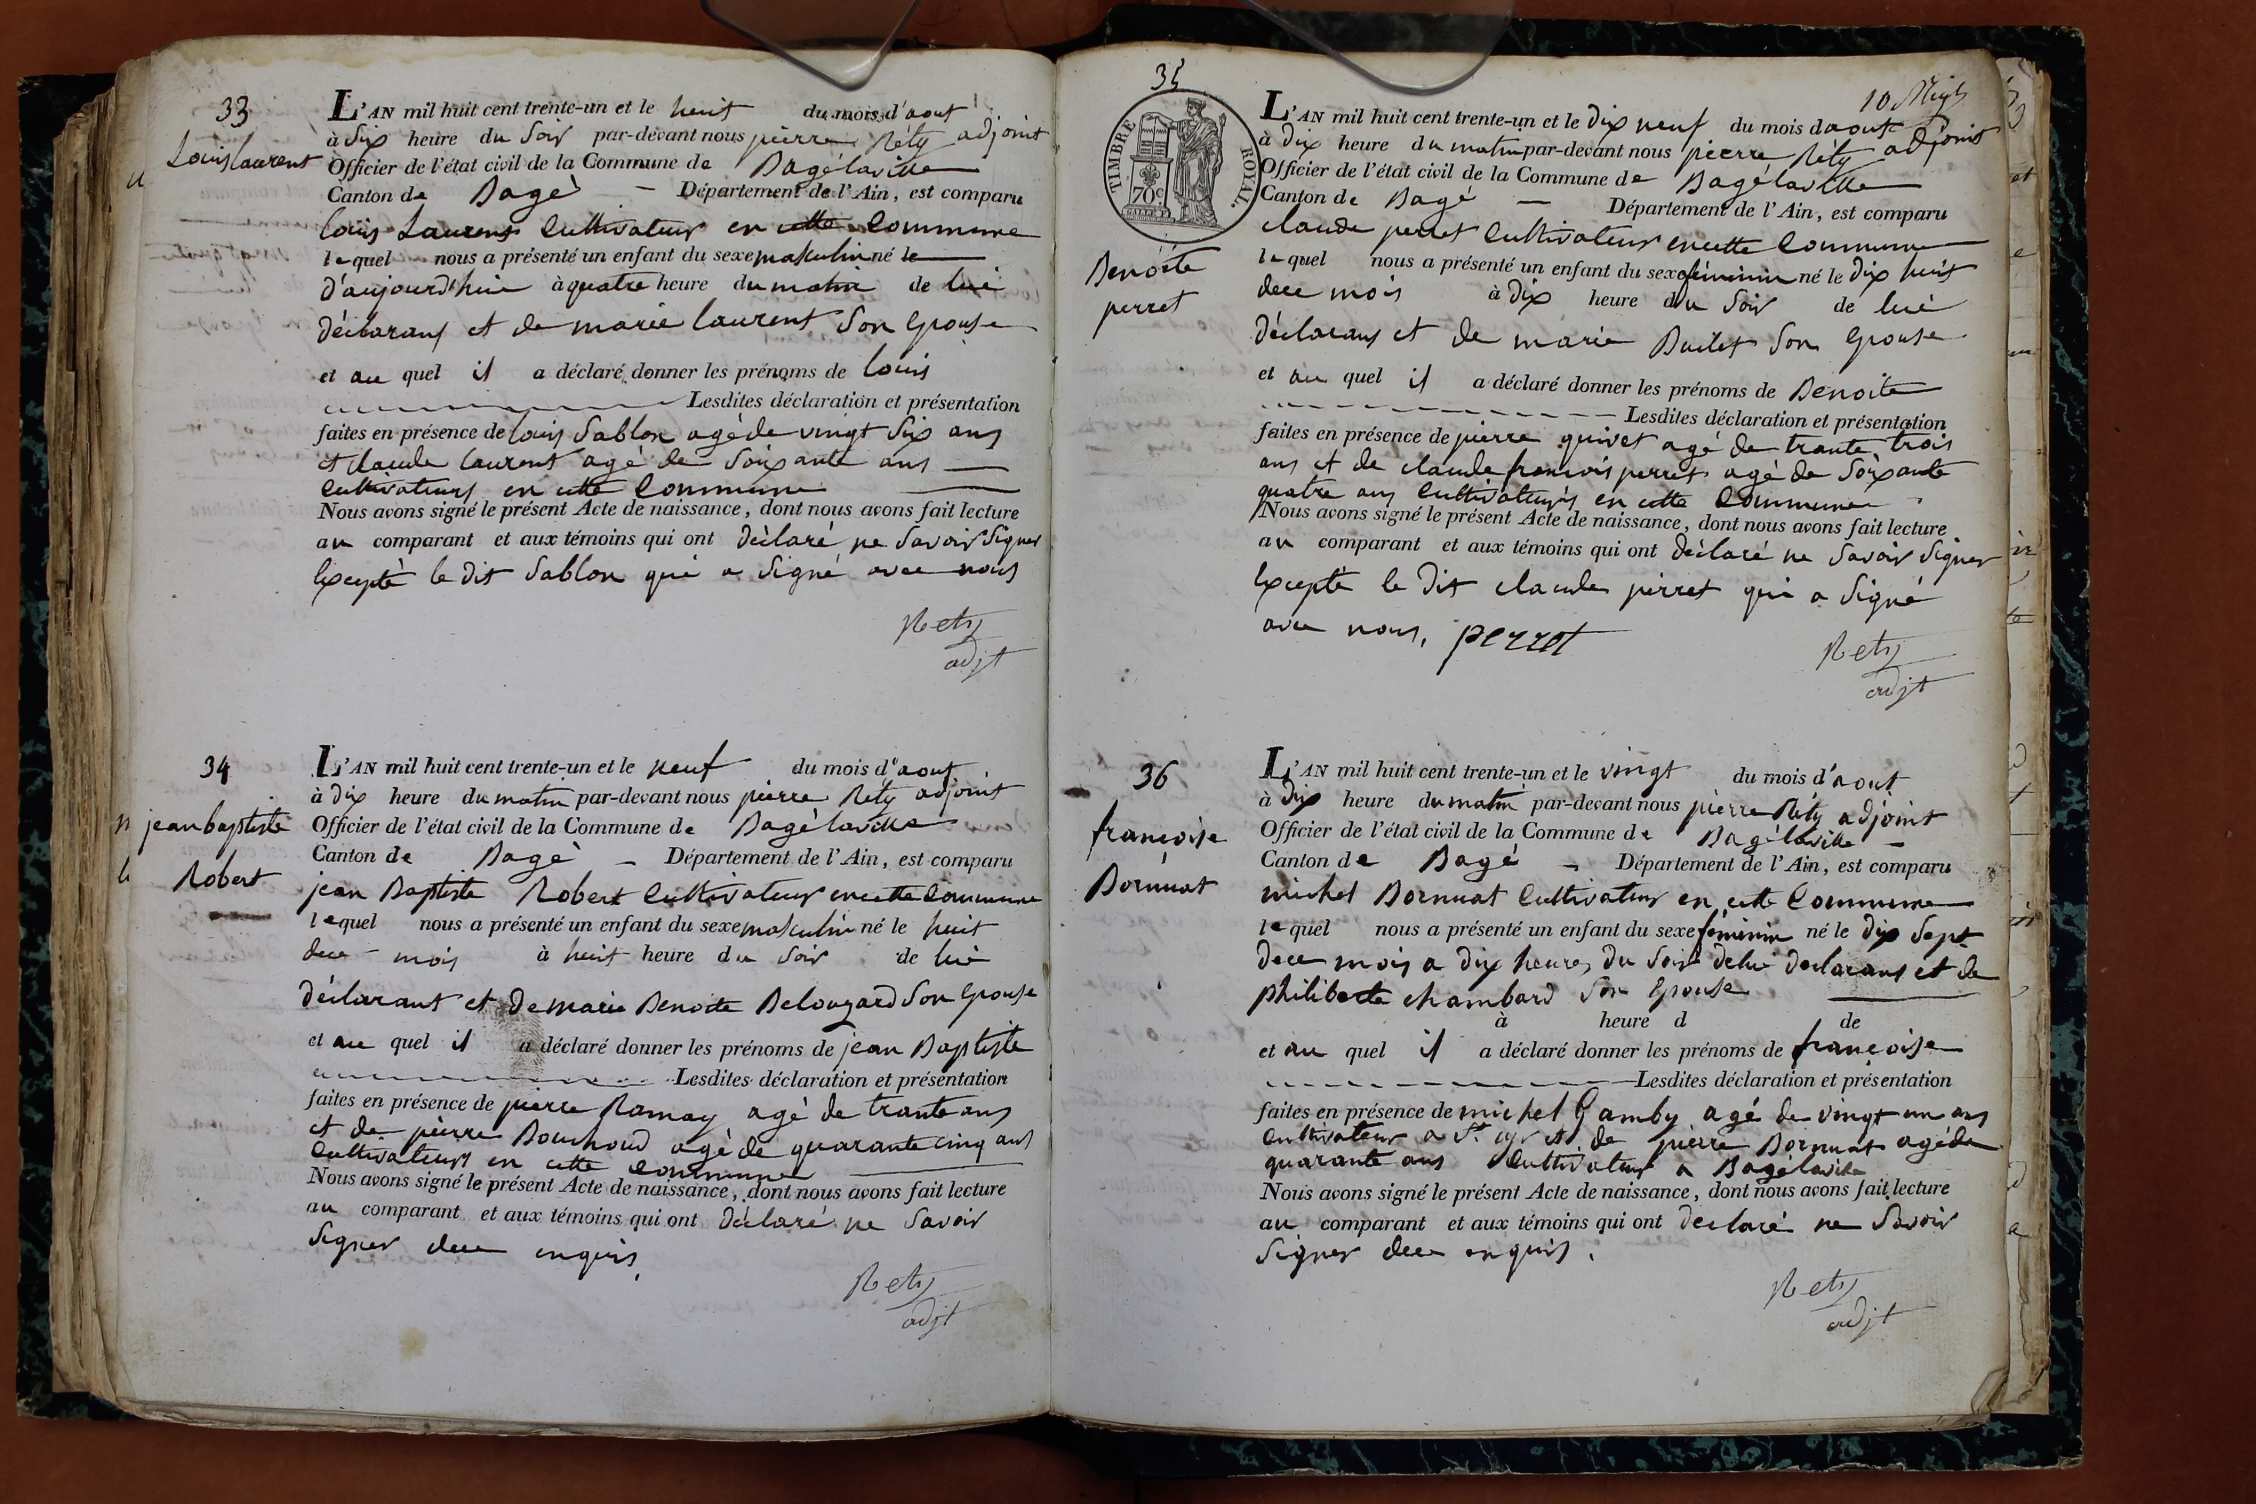 33
Louis laurent
L'AN mil huit cent trente-un et le huit du mois d'aout
à Six heure du Soir par-devant nous pierre Réty adjoint
Officier de l'état civil de la Commune de Bagélaville
Canton de Bagé — Département de l'Ain, est comparu
louis Laurent Cultivateur en cette Commune
lequel nous a présenté un enfant du sexe masculin né le
d'aujourd'hui à quatre heure du matin de lui
déclarant et de marie laurent Son Epouse
et au quel il a déclaré donner les prénoms de louis
Lesdites déclaration et présentation
faites en présence de louis Sablon agé de vingt Six ans
et claude laurent agé de Soixante ans
Cultivateurs en cette Commune
Nous avons signé le présent Acte de naissance, dont nous avons fait lecture
au comparant et aux témoins qui ont déclaré ne Savoir Signer
Excepté le dit Sablon qui a Signé avec nous
Rety
adjt
34
jean baptiste
Robert
L'AN mil huit cent trente-un et le neuf du mois d'aout
à dix heure du matin par-devant nous pierre Réty adjoint
Officier de l'état civil de la Commune de Bagélaville
Canton de Bagé — Département de l'Ain, est comparu
jean Baptiste Robert Cultivateur en cette Commune
lequel nous a présenté un enfant du sexe masculin né le huit
de ce mois à huit heure du Soir de lui
déclarant et de marie Benoite Belouzard Son Epouse
et au quel il a déclaré donner les prénoms de jean Baptiste
Lesdites déclaration et présentation
faites en présence de pierre Ramay agé de trante ans
et de pierre Bournoud agé de quarante cinq ans
Cultivateurs en cette Commune
Nous avons signé le présent Acte de naissance, dont nous avons fait lecture
au comparant et aux témoins qui ont déclaré ne Savoir
Signer de ce enquis,
Rety
adjt
35
TIMBRE ROYAL.
70c
10
Benoite
perret
L'AN mil huit cent trente-un et le dix neuf du mois d'aout
à dix heure du matin par-devant nous pierre Réty adjoint
Officier de l'état civil de la Commune de Bagélaville
Canton de Bagé — Département de l'Ain, est comparu
claude perret Cultivateur en cette Commune
lequel nous a présenté un enfant du sexe féminin né le dix huit
de ce mois à dix heure du Soir de lui
déclarant et de marie Builet Son Epouse
et au quel il a déclaré donner les prénoms de Benoite
Lesdites déclaration et présentation
faites en présence de pierre quivet agé de trante trois
ans et de claude francois perret agé de Soixante
quatre ans Cultivateurs en cette Commune
Nous avons signé le présent Acte de naissance, dont nous avons fait lecture
au comparant et aux témoins qui ont déclaré ne Savoir Signer
Excepté le dit claude perret qui a Signé
avec nous, perret
Rety
adjt
36
françoise
Bornuat
L'AN mil huit cent trente-un et le vingt du mois d'aout
à dix heure du matin par-devant nous pierre Réty adjoint
Officier de l'état civil de la Commune de Bagélaville
Canton de Bagé — Département de l'Ain, est comparu
michel Bornuat Cultivateur en cette Commune
lequel nous a présenté un enfant du sexe féminin né le dix Sept
de ce mois a dix heures du Soir de lui declarant et de
philiberte chambard Son Epouse
à heure d de
et au quel il a déclaré donner les prénoms de françoise
Lesdites déclaration et présentation
faites en présence de michel Gamby agé de vingt un ans
Cultivateur a St. cyr et de pierre Bornuat agé de
quarante ans Cultivateur a Bagélaville
Nous avons signé le présent Acte de naissance, dont nous avons fait lecture
au comparant et aux témoins qui ont declaré ne Savoir
Signer de ce enquis,
Rety
adjt